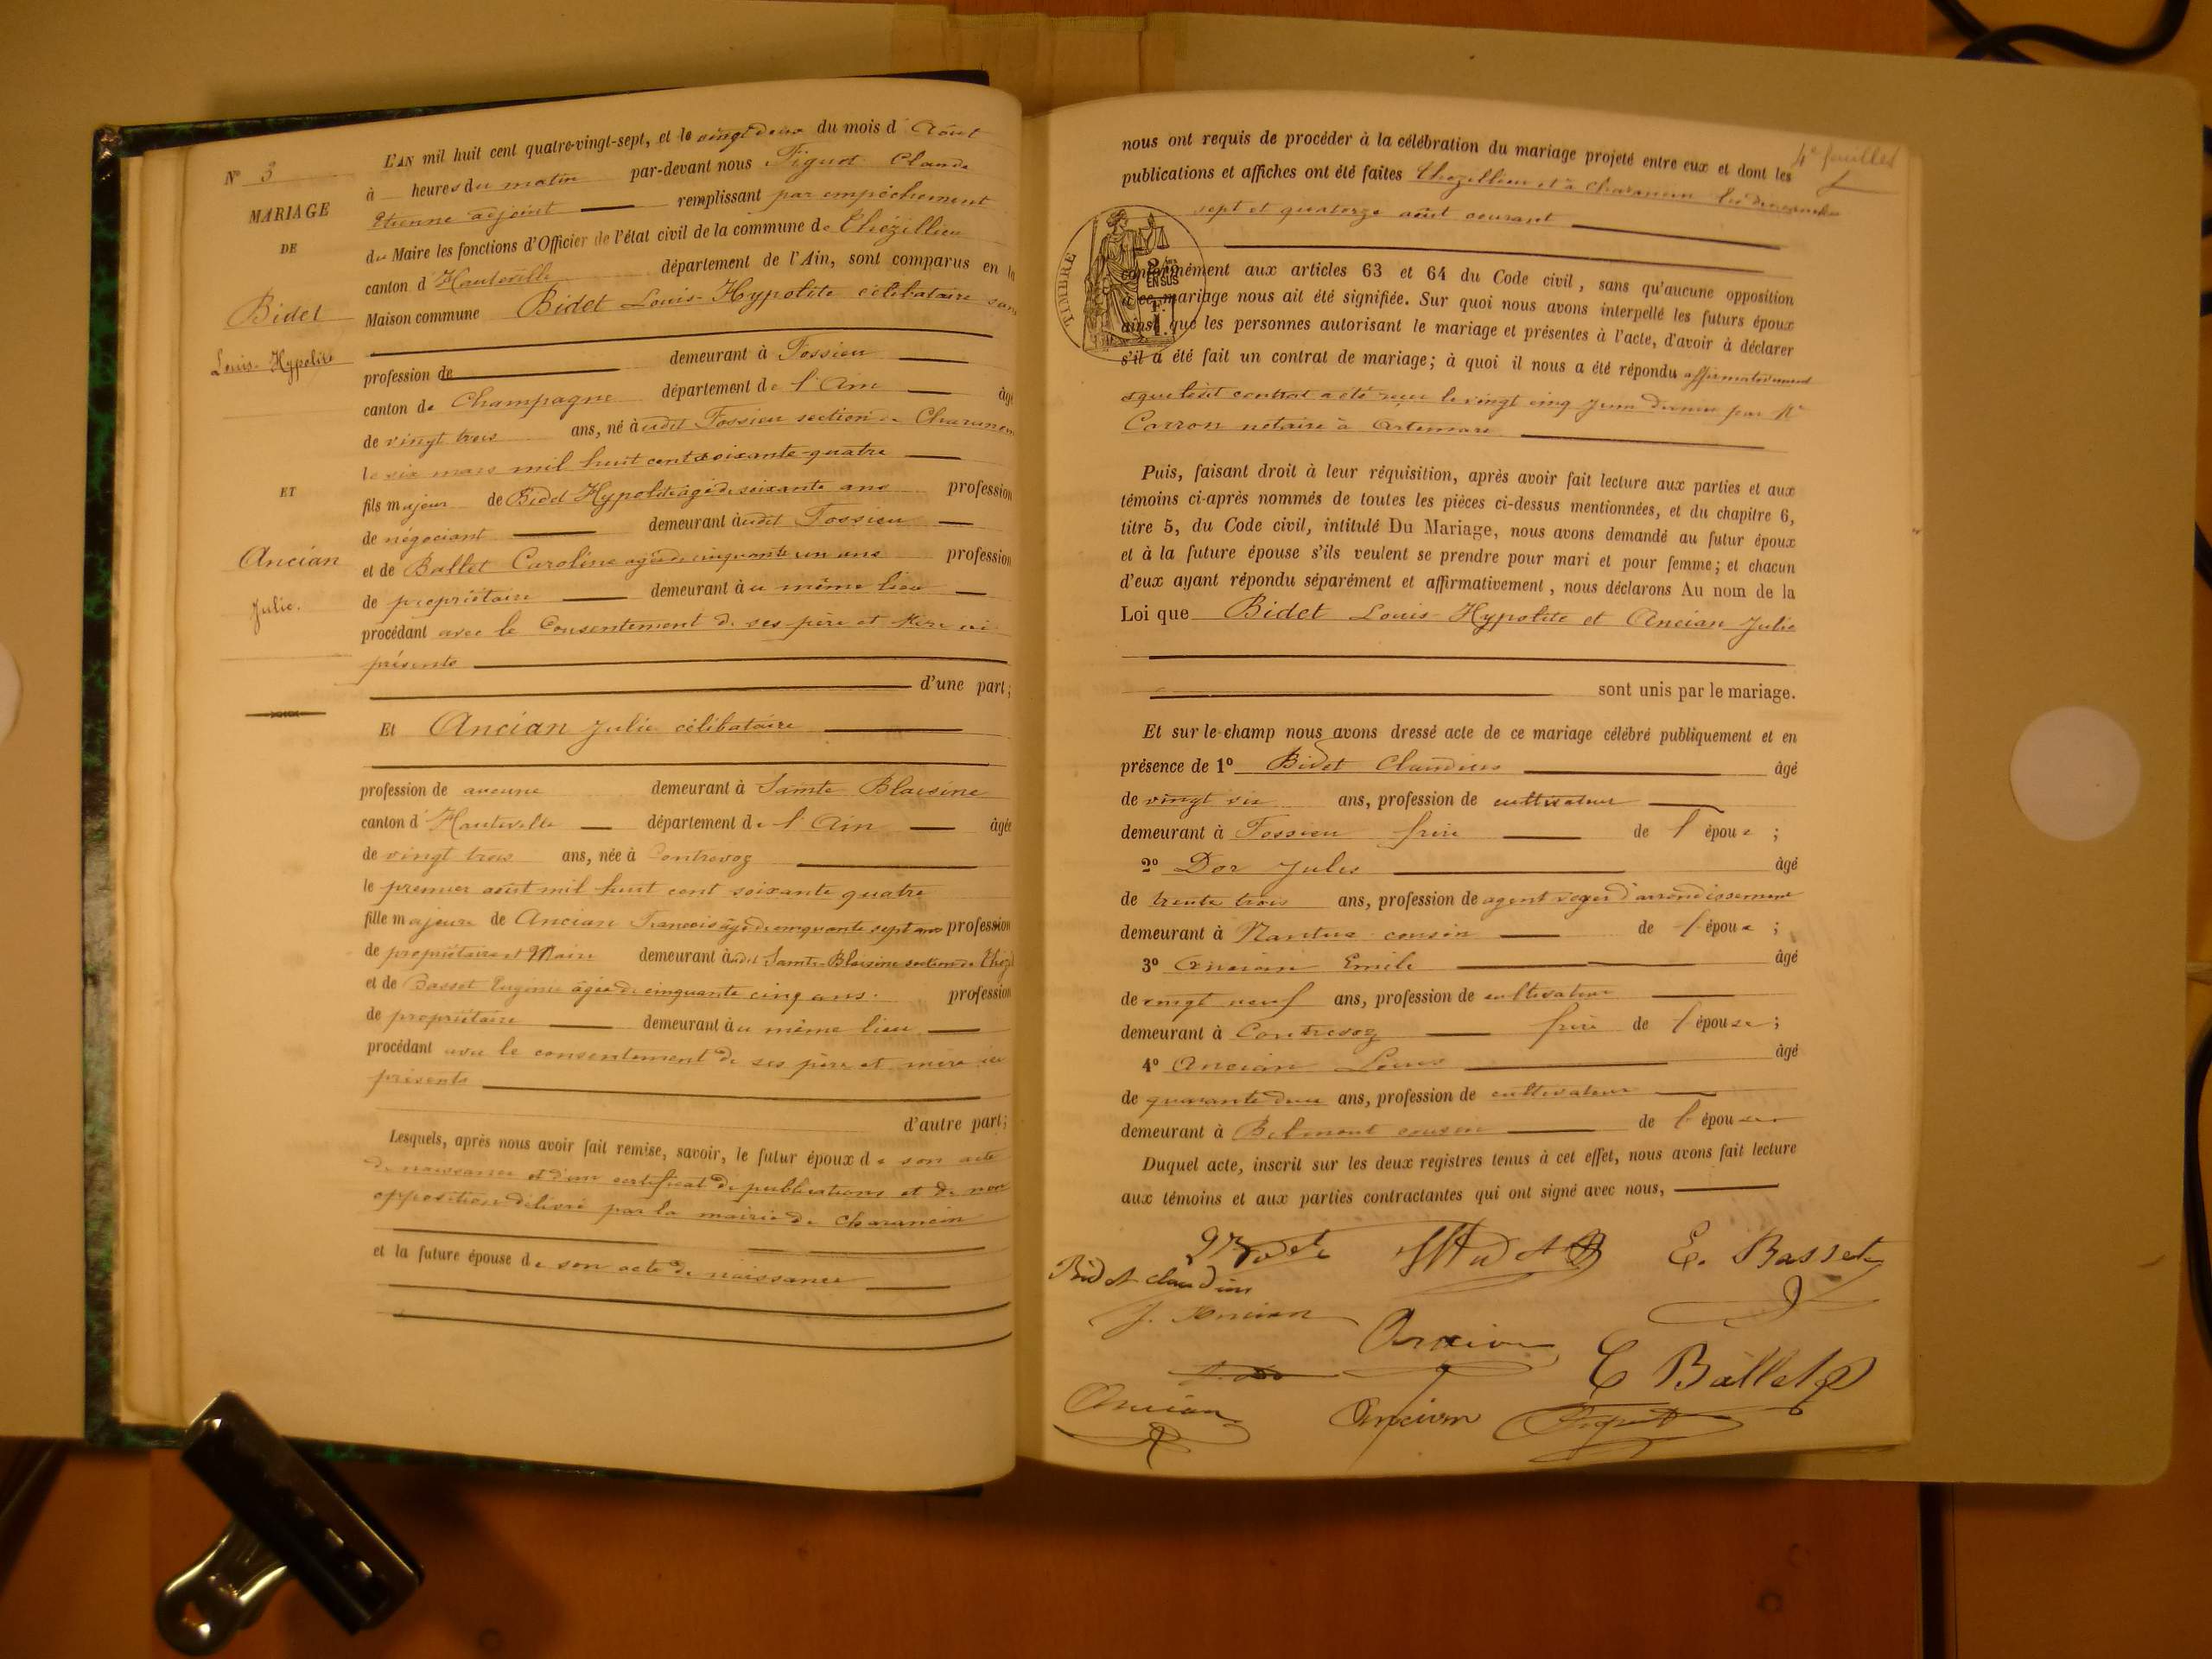 N° 3
MARIAGE
DE
Bidet
Louis-Hypolite
ET
Ancian
Julie.
L'AN mil huit cent quatre-vingt-sept, et le vingt deux du mois d'Août
à heures du matin par-devant nous Figuet Claude
Etienne adjoint remplissant par empêchement
du Maire les fonctions d'Officier de l'état civil de la commune de Thézillieu
canton d'Hauteville département de l'Ain, sont comparus en la
Maison commune Bidet Louis-Hypolite célibataire sans
profession de demeurant à Fossieu
canton de Champagne département de l'Ain âgé
de vingt trois ans, né audit Fossieu section de Charancin
le six mars mil huit cent soixante-quatre
fils majeur de Bidet Hypolite âgé de soixante ans profession
de négociant demeurant audit Fossieu
et de Ballet Caroline agée de cinquante un ans profession
de propriétaire demeurant au même lieu
procédant avec le Consentement de ses père et Mère ici
présents
d'une part;
Et Ancian Julie célibataire
profession de aucune demeurant à Sainte Blaisine
canton d'Hauteville département de l'Ain âgée
de vingt trois ans, née à Contrevoz
le premier août mil huit cent soixante quatre
fille majeure de Ancian François âgé de cinquante sept ans profession
de propriétaire et Maire demeurant audit Sainte-Blaisine section de Thézil
et de Basset Eugénie âgée de cinquante cinq ans. profession
de propriétaire demeurant au même lieu
procédant avec le consentement de ses père et mère ici
présents
d'autre part;
Lesquels, après nous avoir fait remise, savoir, le futur époux de son acte
de naissance et d'un certificat de publications et de non
opposition délivré par la mairie de Charancin
et la future épouse de son acte de naissance
4e feuillet
nous ont requis de procéder à la célébration du mariage projeté entre eux et dont les
publications et affiches ont été faites Thezillieu et à Charancin les dimanches
sept et quatorze août courant
TIMBRE
2
EN SUS
F.
1.
conformément aux articles 63 et 64 du Code civil, sans qu'aucune opposition
à ce mariage nous ait été signifiée. Sur quoi nous avons interpellé les futurs époux
ainsi que les personnes autorisant le mariage et présentes à l'acte, d'avoir à déclarer
s'il a été fait un contrat de mariage; à quoi il nous a été répondu affirmativement
et que ledit contrat a été reçu le vingt cinq juin dernier par Me
Carron notaire à Artemare
Puis, faisant droit à leur réquisition, après avoir fait lecture aux parties et aux
témoins ci-après nommés de toutes les pièces ci-dessus mentionnées, et du chapitre 6,
titre 5, du Code civil, intitulé Du Mariage, nous avons demandé au futur époux
et à la future épouse s'ils veulent se prendre pour mari et pour femme; et chacun
d'eux ayant répondu séparément et affirmativement, nous déclarons Au nom de la
Loi que Bidet Louis-Hypolite et Ancian Julie
sont unis par le mariage.
Et sur-le-champ nous avons dressé acte de ce mariage célébré publiquement et en
présence de 1° Bidet Claudius âgé
de vingt six ans, profession de cultivateur
demeurant à Fossieu frère de l'époux;
2° Dor Jules âgé
de trente trois ans, profession de agent voyer d'arrondissement
demeurant à Nantua cousin de l'époux;
3° Ancian Emile âgé
de vingt neuf ans, profession de cultivateur
demeurant à Contrevoz frère de l'épouse;
4° Ancian Louis âgé
de quarante deux ans, profession de cultivateur
demeurant à Belmont cousin de l'épouse
Duquel acte, inscrit sur les deux registres tenus à cet effet, nous avons fait lecture
aux témoins et aux parties contractantes qui ont signé avec nous,
E. Basset
Bidet Claudius
J. Ancian
Ancian
C Ballet
Ancian
Ancian
Figuet